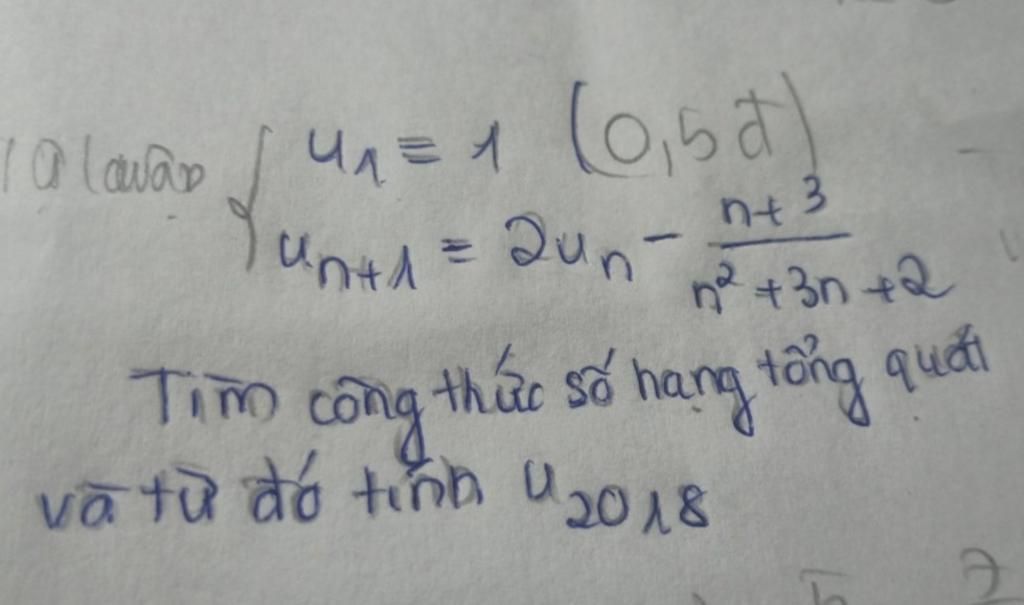 Tự luận { u₁ = 1 (0,5đ)
uₙ₊₁ = 2uₙ − (n+3)/(n²+3n+2)
Tìm công thức số hạng tổng quát
và từ đó tính u₂₀₁₈
7